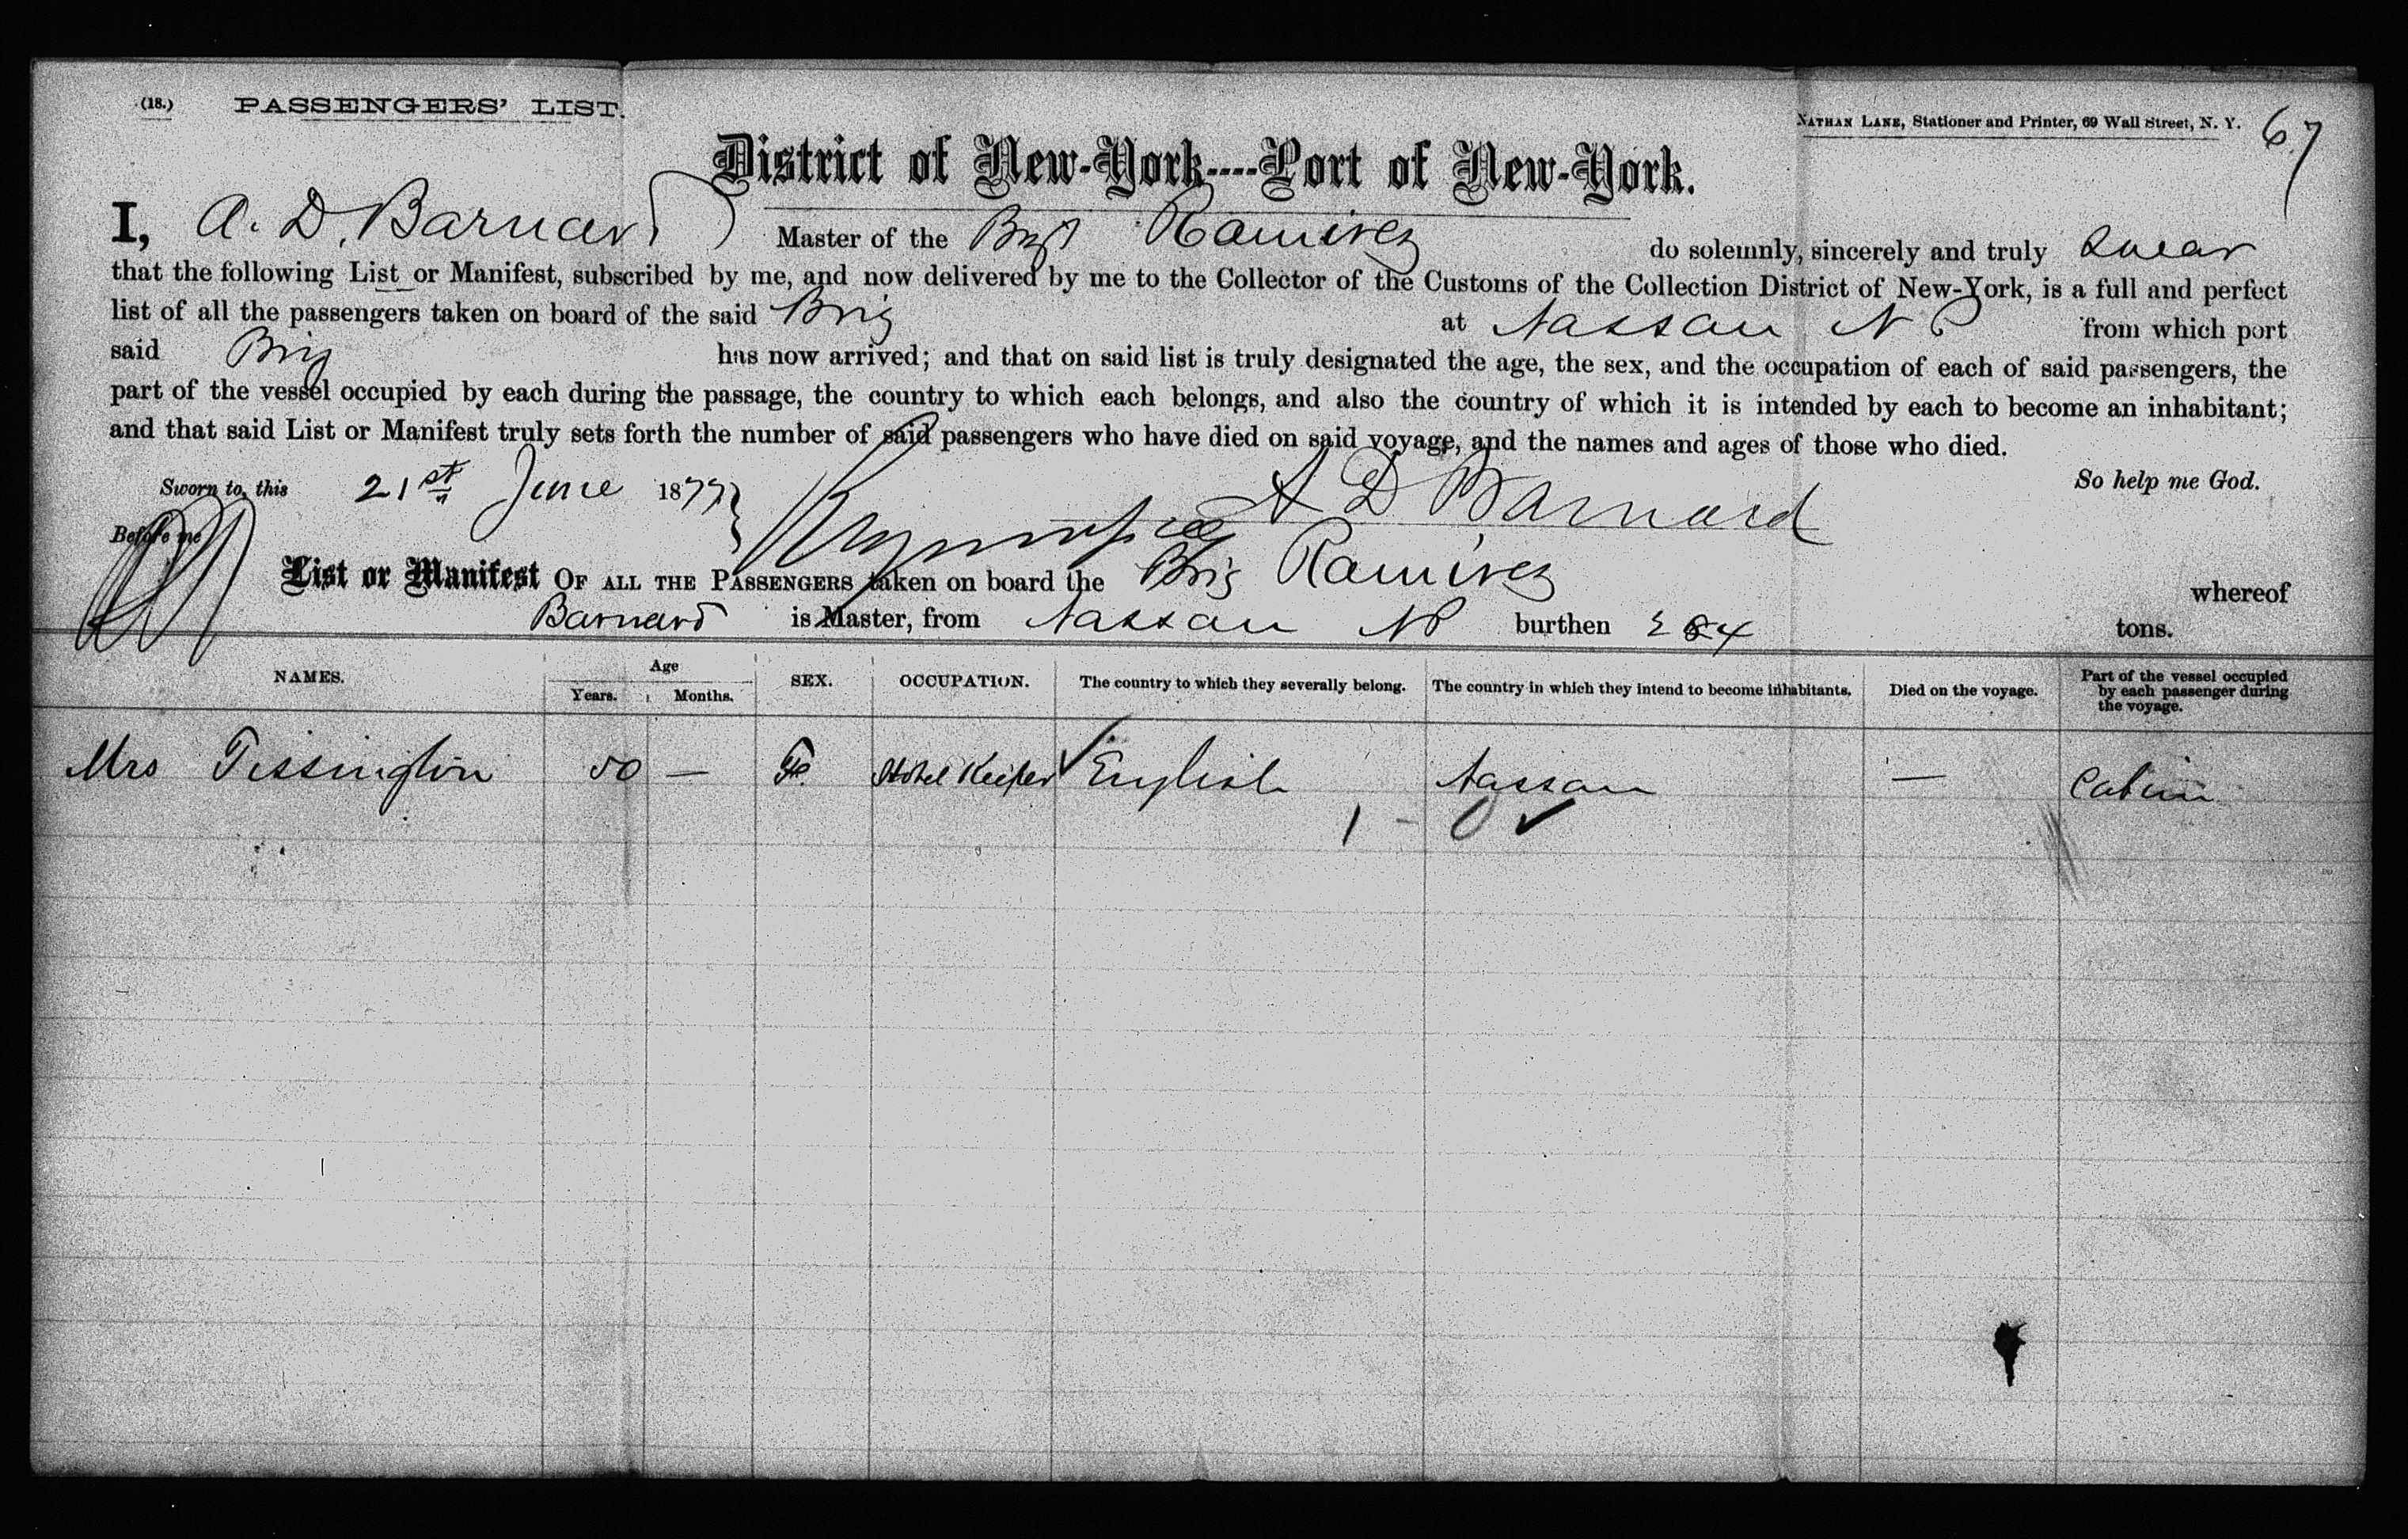 (18.) PASSENGERS' LIST. NATHAN LANE, Stationer and Printer, 69 Wall Street, N. Y. 67
District of New-York----Port of New-York.
I, A. D. Barnard Master of the Brig Ramirez do solemnly, sincerely and truly Swear
that the following List or Manifest, subscribed by me, and now delivered by me to the Collector of the Customs of the Collection District of New-York, is a full and perfect
list of all the passengers taken on board of the said Brig at Nassau N P from which port
said Brig has now arrived; and that on said list is truly designated the age, the sex, and the occupation of each of said passengers, the
part of the vessel occupied by each during the passage, the country to which each belongs, and also the country of which it is intended by each to become an inhabitant;
and that said List or Manifest truly sets forth the number of said passengers who have died on said voyage, and the names and ages of those who died.
Sworn to, this 21st June 1877 A D Barnard So help me God.
Before me
List or Manifest OF ALL THE PASSENGERS taken on board the Brig Ramirez whereof
Barnard is Master, from Nassau NP burthen 284 tons.
NAMES. Age Years. Months. SEX. OCCUPATION. The country to which they severally belong. The country in which they intend to become inhabitants. Died on the voyage. Part of the vessel occupied by each passenger during the voyage.
Mrs Tissington 50 — Fe. Hotel Keeper English Nassau — Cabin
1 - 0